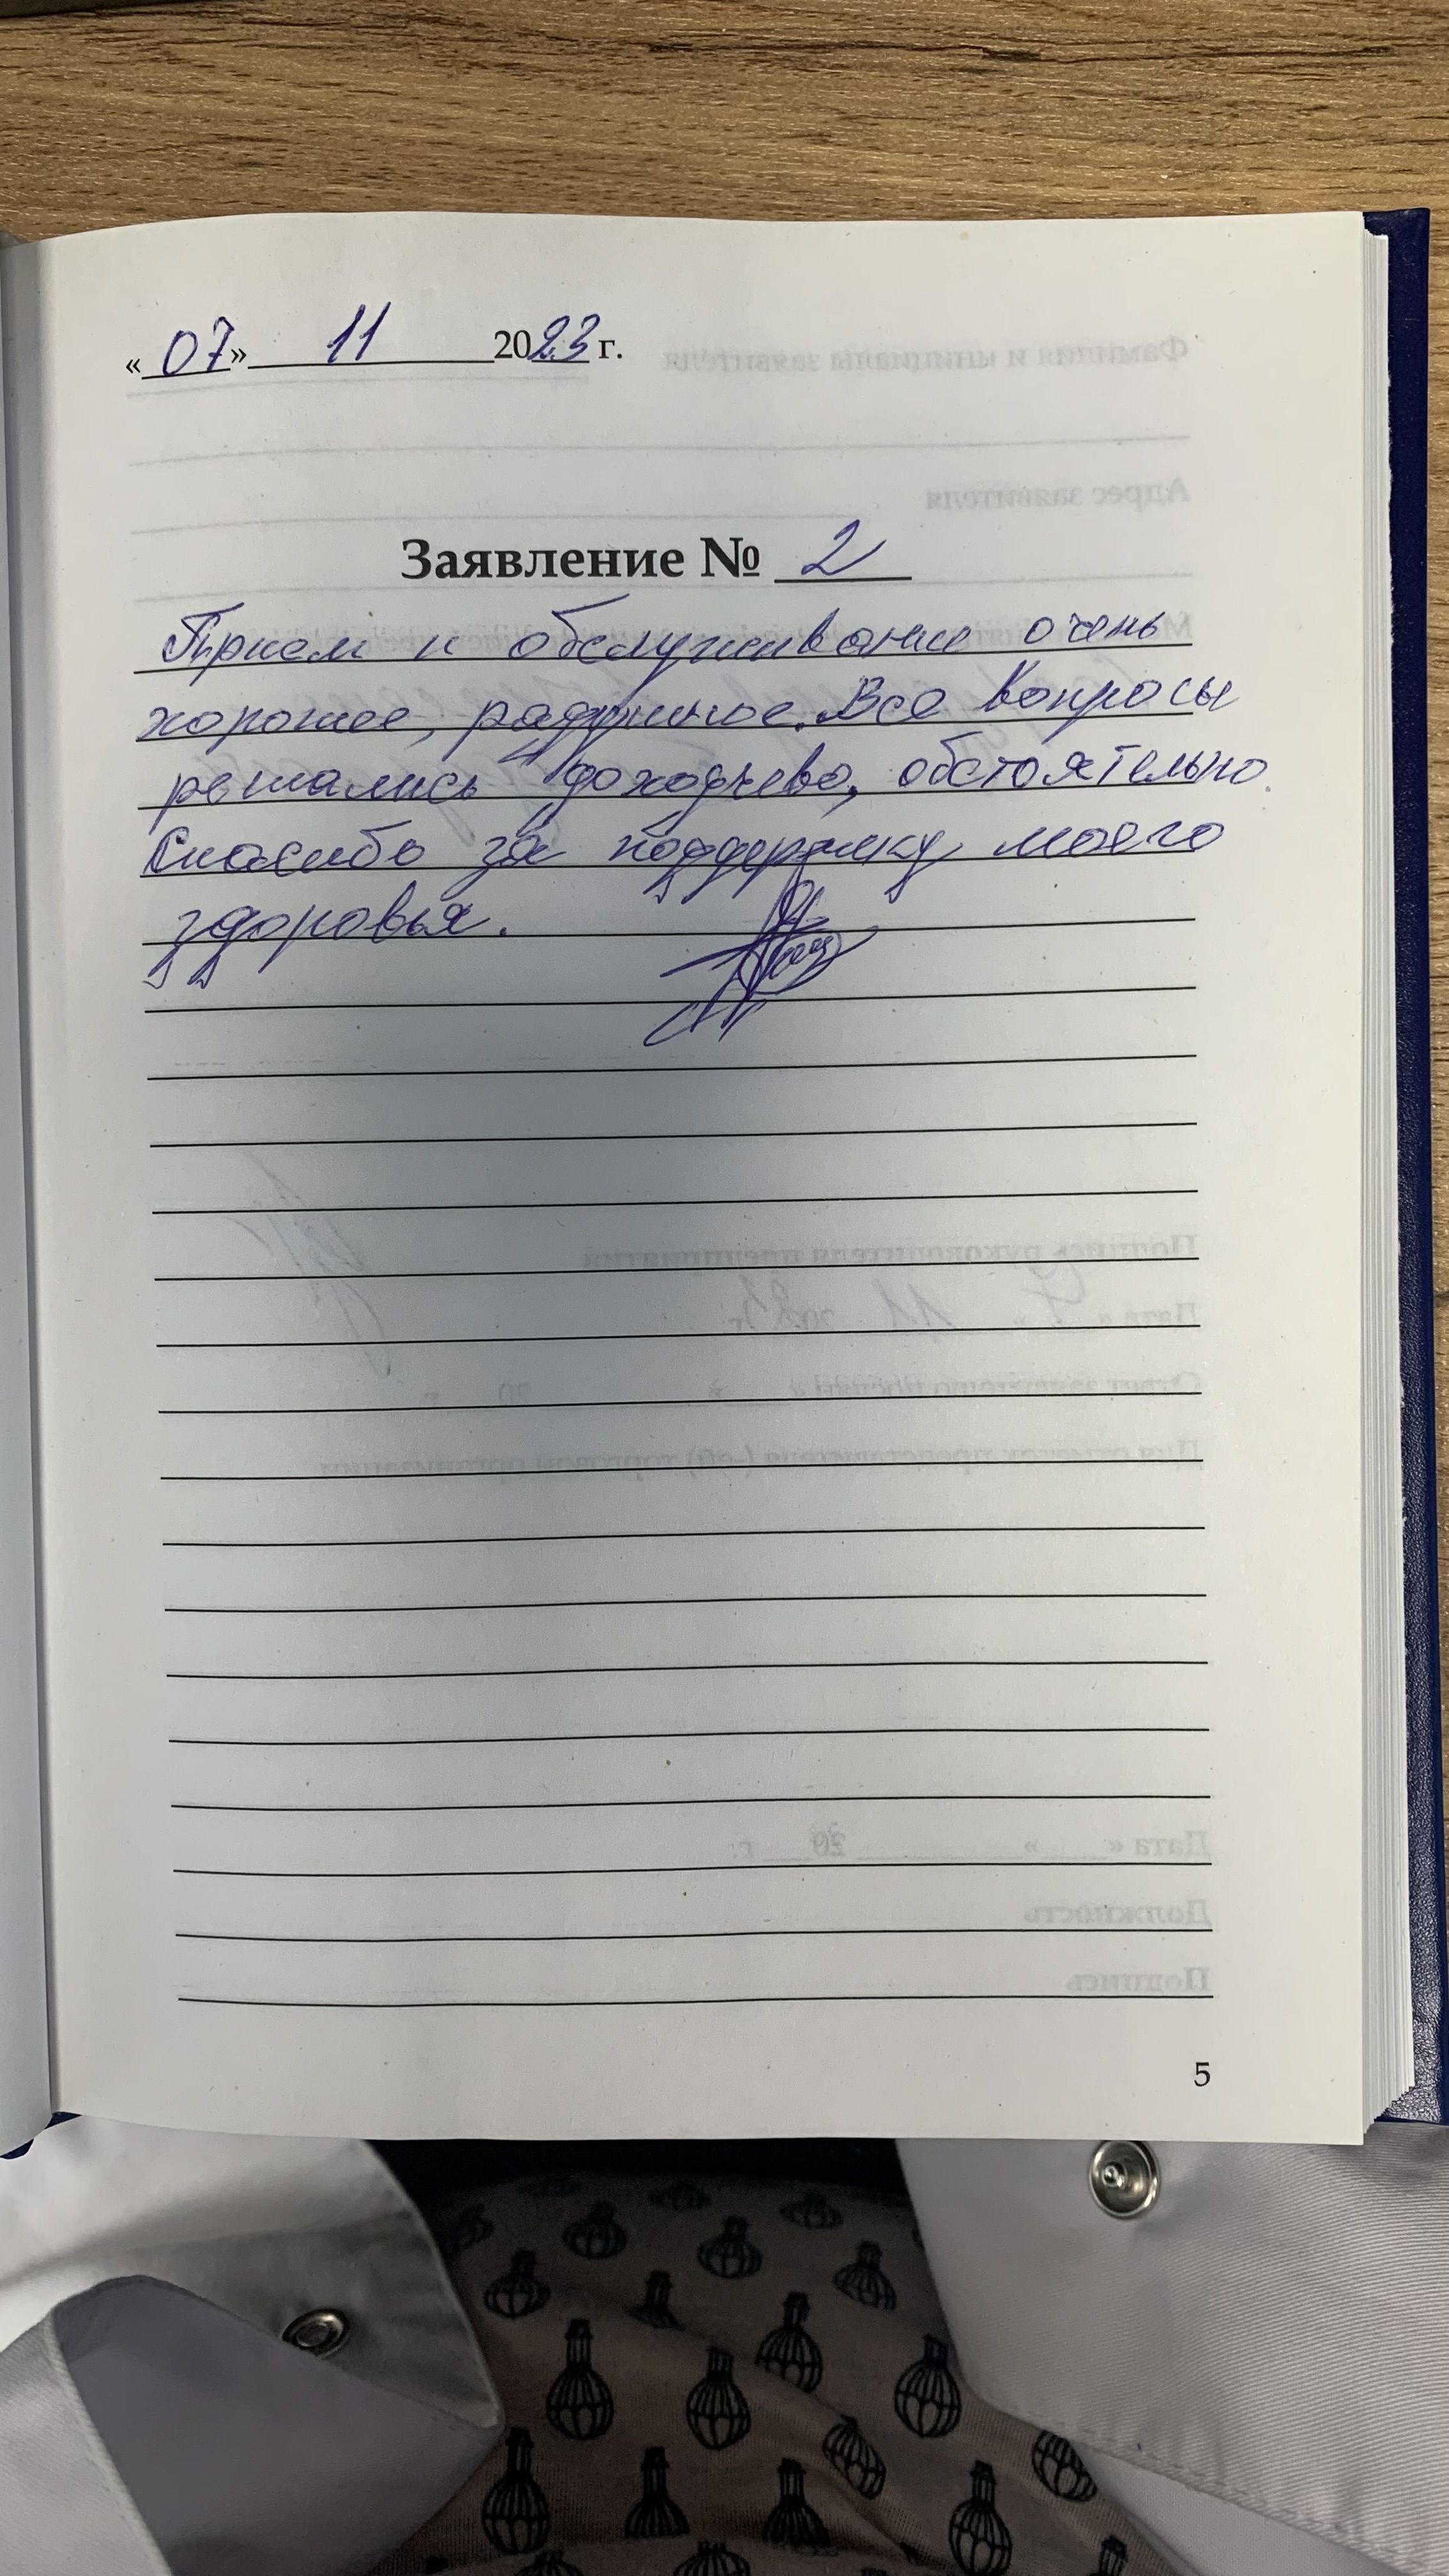 « 07 » 11 2023 г.
Заявление № 2
Прием и обслуживание очень
хорошее, радушное. Все вопросы
решались доходчево, обстоятельно.
Спасибо за поддержку моего
здоровья.
5